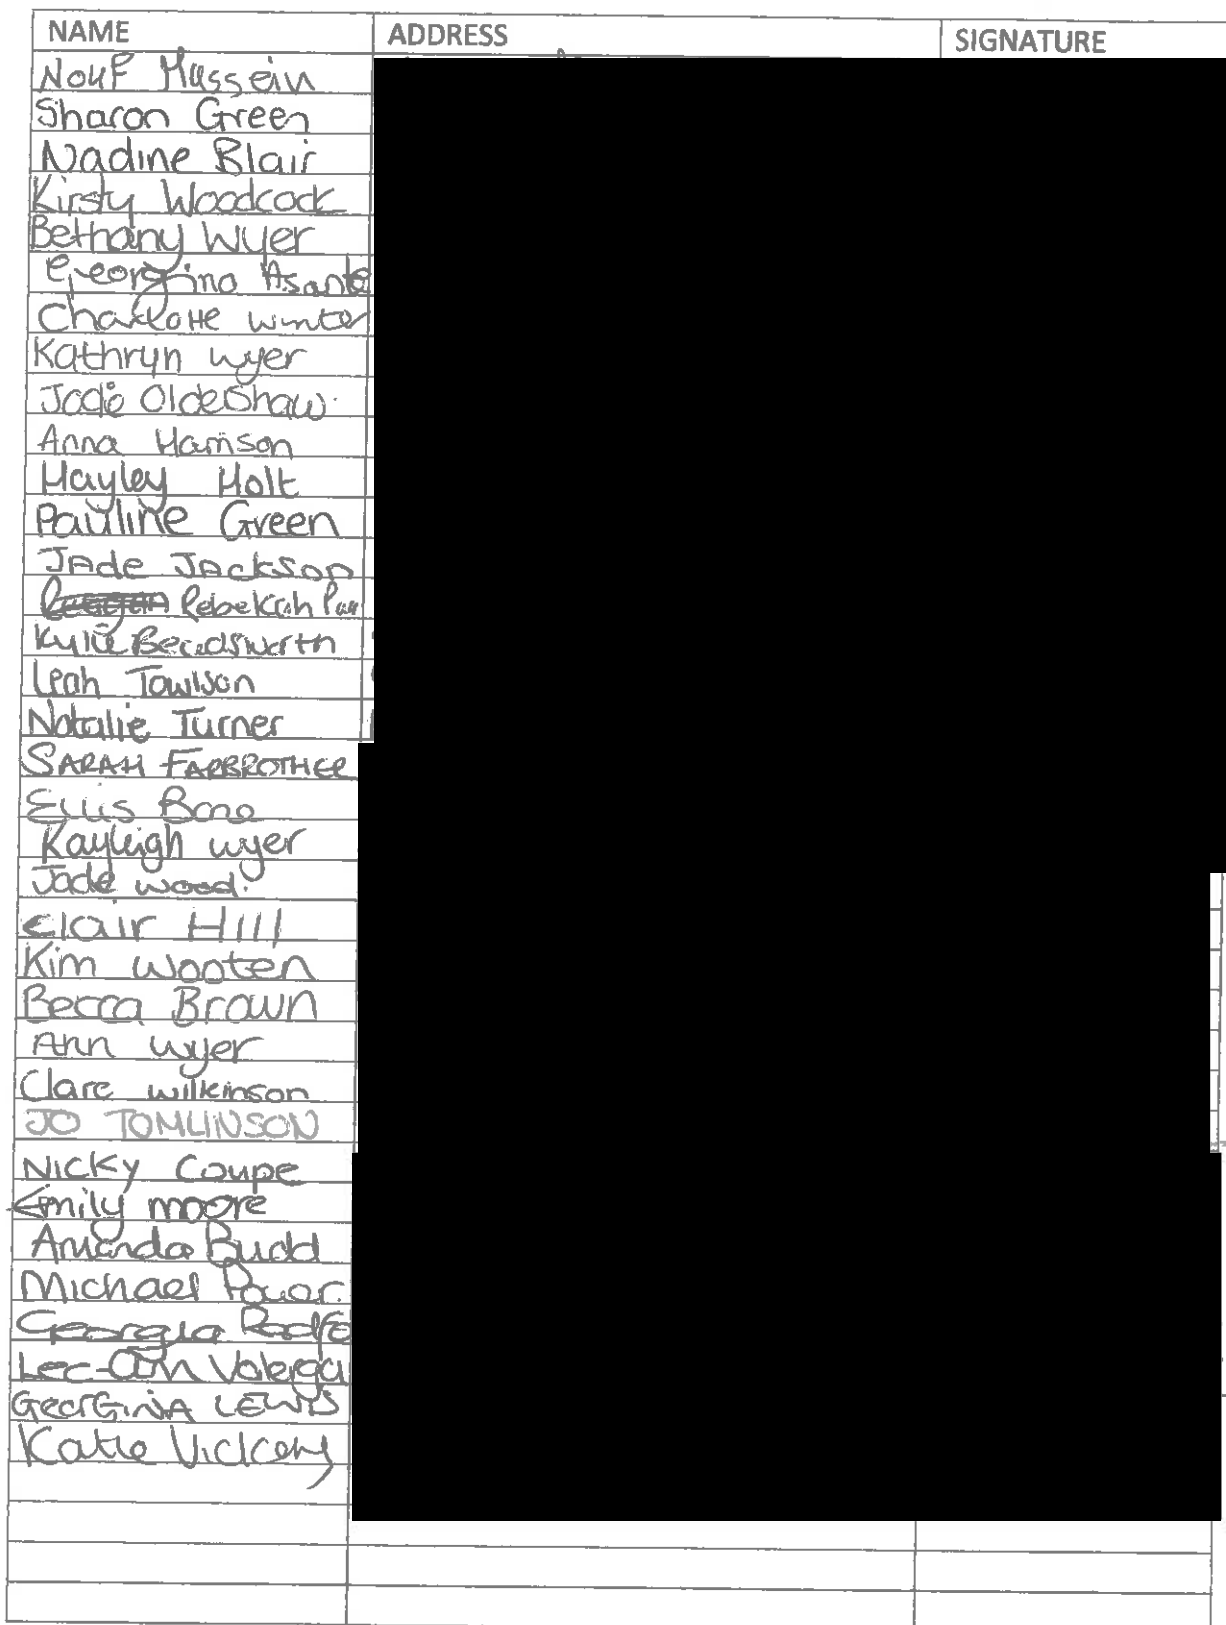 NAME ADDRESS SIGNATURE
Nouf Hussein
Sharon Green
Nadine Blair
Kirsty Woodcock
Bethany Wyer
Georgina Asante
Charlotte Winter
Kathryn Wyer
Jade Oldershaw
Anna Harrison
Hayley Holt
Pauline Green
JAde JAckson
Rebekah
Kylie Beardsworth
Leah Towlson
Natalie Turner
SARAH FARBROTHER
Ellis Bone
Kayleigh wyer
Jade wood.
Clair Hill
Kim Wooten
Becca Brown
Ann wyer
Clare wilkinson
JO TOMLINSON
NICKY Coupe
Emily moore
Amanda Budd
Michael
Georgia Radfo
Lee-Ann
GeorGiNA LEWIS
Katie Vickery